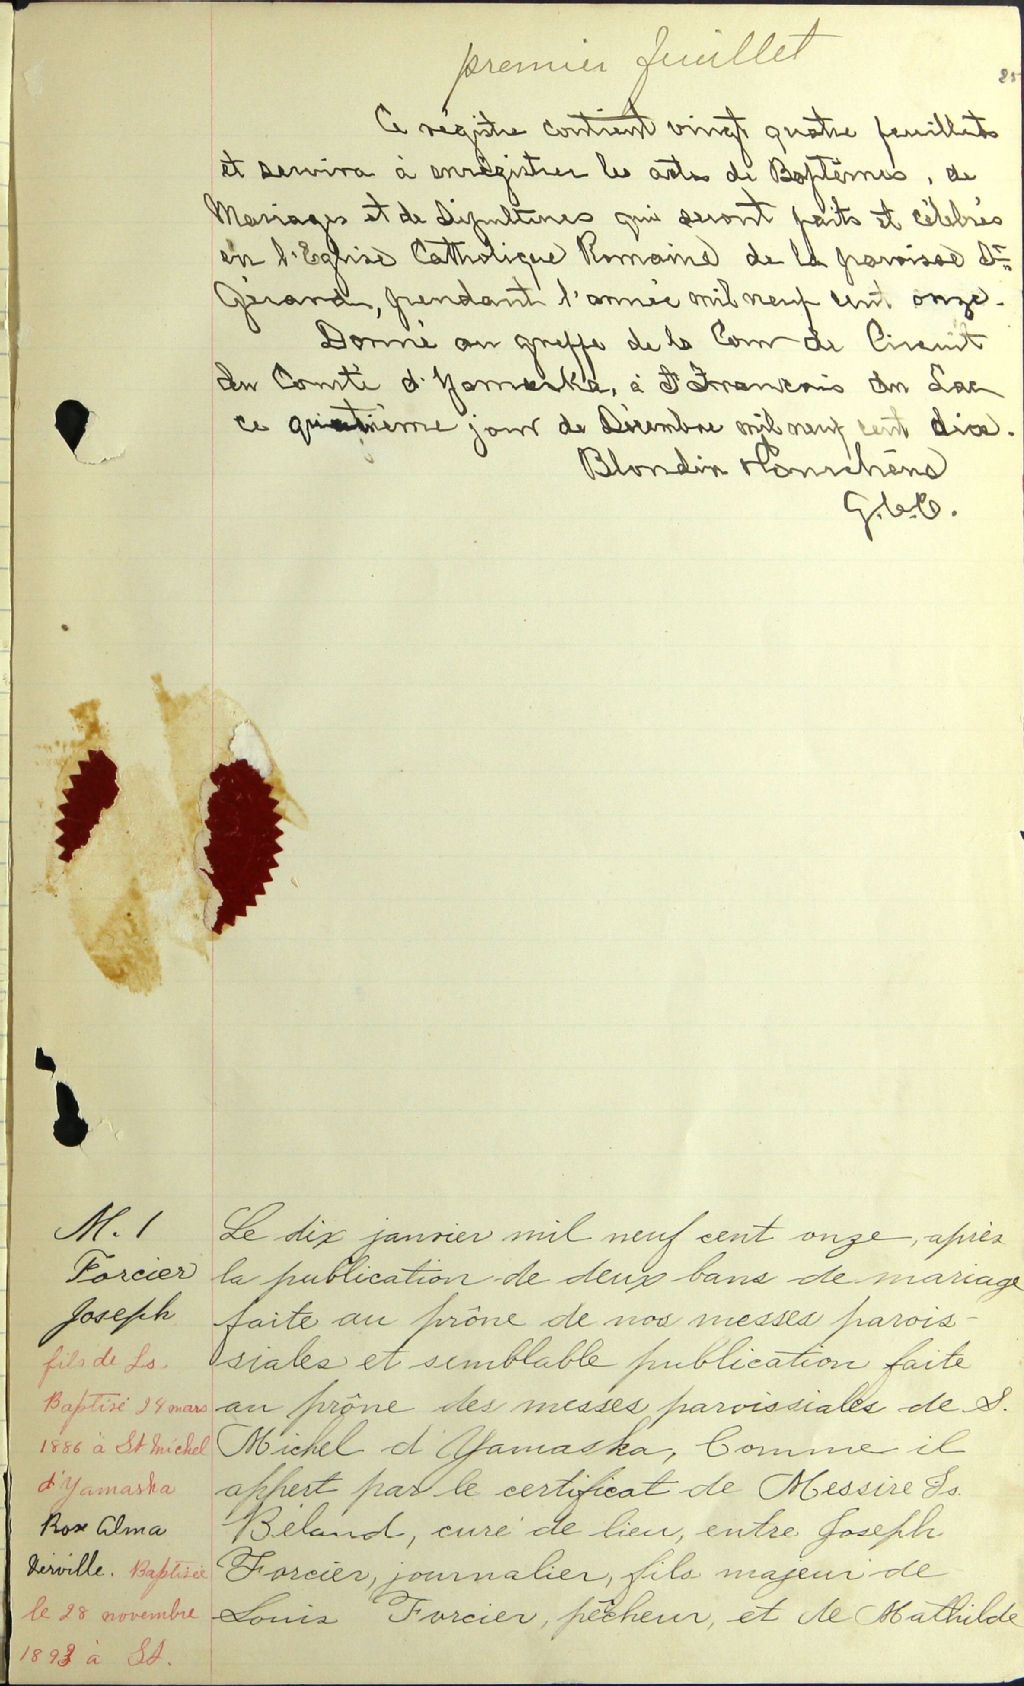 premier feuillet
25
Ce régistre contient vingt quatre feuillets
et servira à enrégistrer les actes de Baptêmes, de
Mariages et de Sépultures qui seront faits et célébrés
en l'Eglise Catholique Romaine de la paroisse St
Gérard, pendant l'année mil neuf cent onze.
Donné au greffe de la Cour de Circuit
du Comté d'Yamaska, à St François du Lac
ce quatrième jour de Décembre mil neuf cent dix.
Blondin
G.C.C.
M. 1
Forcier
Joseph
fils de Ls.
Baptisé 24 mars
1886 à St Michel
d'Yamaska
Rose Alma
Niéville. Baptisée
le 28 novembre
1893 à St.
Le dix janvier mil neuf cent onze, après
la publication de deux bans de mariage
faite au prône de nos messes parois-
siales et semblable publication faite
au prône des messes paroissiales de S.
Michel d'Yamaska, Comme il
appert par le certificat de Messire Ls.
Béland, curé de lieu, entre Joseph
Forcier, journalier, fils majeur de
Louis Forcier, pêcheur, et de Mathilde